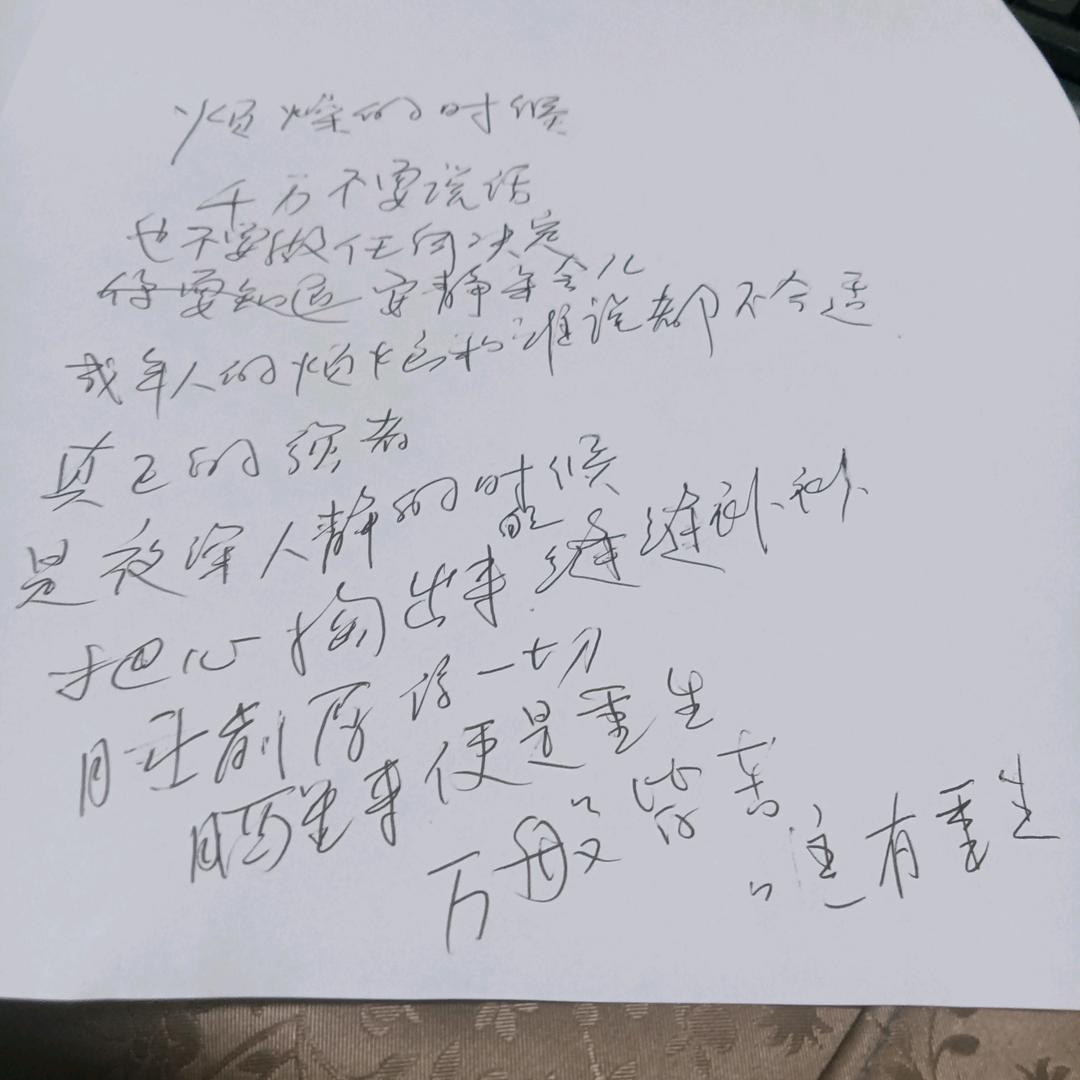 烦燥的时候
千万不要说话
也不要做任何决定
你要知道安静年会儿
成年人的烦恼和谁说都不合适
真正的强者
是夜深人静的时候
把心掏出来 缝缝补补
睡前原谅一切
醒来便是重生
万般皆苦
唯有重生